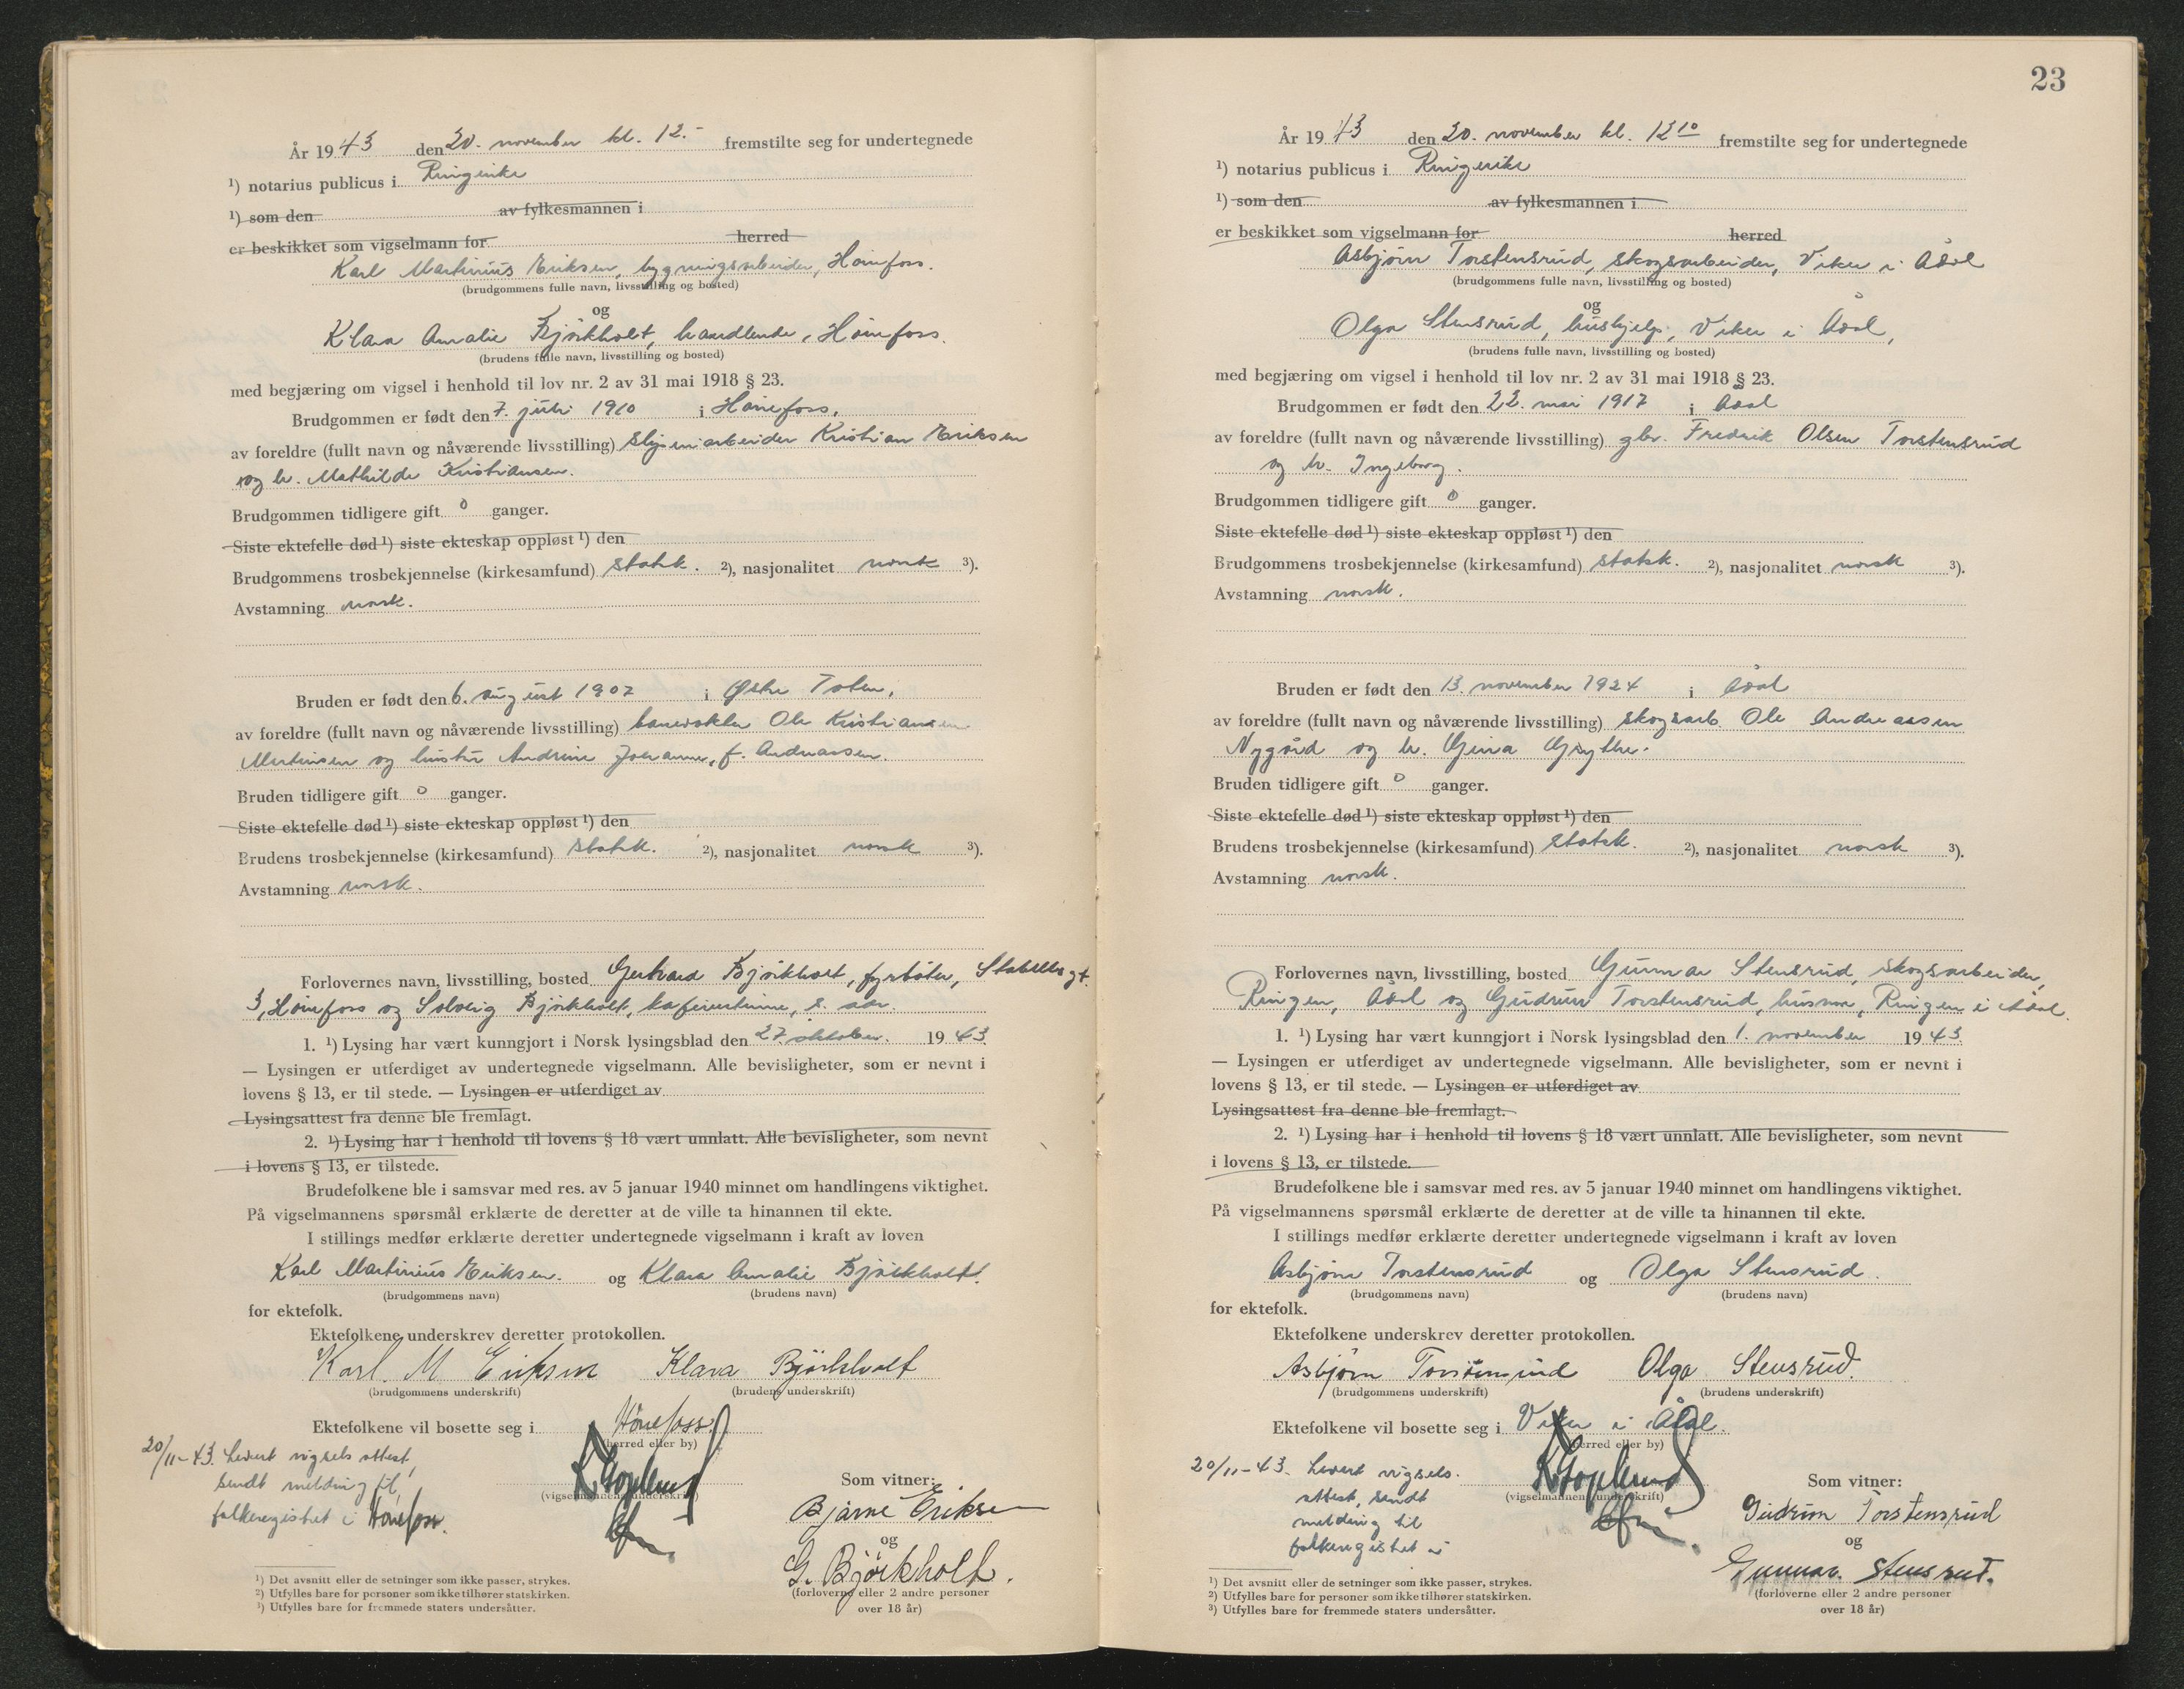 År 1943 den 20. november kl. 12.- fremstilte seg for undertegnede
¹) notarius publicus i Ringerike
¹) som den av fylkesmannen i
er beskikket som vigselmann for herred
Karl Martinius Eriksen, bygningsarbeider, Hønefoss.
(brudgommens fulle navn, livsstilling og bosted)
og
Klara Amalie Bjørkholt, handlende, Hønefoss.
(brudens fulle navn, livsstilling og bosted)
med begjæring om vigsel i henhold til lov nr. 2 av 31 mai 1918 § 23.
Brudgommen er født den 7. juli 1910 i Hønefoss,
av foreldre (fullt navn og nåværende livsstilling) sliperiarbeider Kristian Eriksen
og h. Mathilde Kristiansen.
Brudgommen tidligere gift 0 ganger.
Siste ektefelle død ¹) siste ekteskap oppløst ¹) den
Brudgommens trosbekjennelse (kirkesamfund) statsk. ²), nasjonalitet norsk ³).
Avstamning norsk.
Bruden er født den 6. august 1907 i Østre Toten,
av foreldre (fullt navn og nåværende livsstilling) banevokter Ole Kristiansen
Martinsen og hustru Andrine Johanne, f. Andreassen.
Bruden tidligere gift 0 ganger.
Siste ektefelle død ¹) siste ekteskap oppløst ¹) den
Brudens trosbekjennelse (kirkesamfund) statsk. ²), nasjonalitet norsk ³).
Avstamning norsk.
Forlovernes navn, livsstilling, bosted Gerhard Bjørkholt, fyrbøter, Stabells gt.
3, Hønefoss og Solveig Bjørkholt, kafevertinne, s. adr.
1. ¹) Lysing har vært kunngjort i Norsk lysingsblad den 27. oktober. 1943
— Lysingen er utferdiget av undertegnede vigselmann. Alle bevisligheter, som er nevnt i
lovens § 13, er til stede. — Lysingen er utferdiget av
Lysingsattest fra denne ble fremlagt.
2. ¹) Lysing har i henhold til lovens § 18 vært unnlatt. Alle bevisligheter, som nevnt
i lovens § 13, er tilstede.
Brudefolkene ble i samsvar med res. av 5 januar 1940 minnet om handlingens viktighet.
På vigselmannens spørsmål erklærte de deretter at de ville ta hinannen til ekte.
I stillings medfør erklærte deretter undertegnede vigselmann i kraft av loven
Karl Martinius Eriksen. og Klara Amalie Bjørkholt.
(brudgommens navn) (brudens navn)
for ektefolk.
Ektefolkene underskrev deretter protokollen.
Karl. M Eriksen Klara Bjørkholt
(brudgommens underskrift) (brudens underskrift)
Ektefolkene vil bosette seg i Hønefoss.
(herred eller by)
20/11-43. Levert vigsels attest,
sendt melding til
folkeregistret i Hønefoss.
(vigselmannens underskrift)
Som vitner:
Bjarne Eriksen
og
G. Bjørkholt.
(forloverne eller 2 andre personer
over 18 år)
¹) Det avsnitt eller de setninger som ikke passer, strykes.
²) Utfylles bare for personer som ikke tilhører statskirken.
³) Utfylles bare for fremmede staters undersåtter.
23
År 1943 den 20. november kl. 12¹⁰ fremstilte seg for undertegnede
¹) notarius publicus i Ringerike
¹) som den av fylkesmannen i
er beskikket som vigselmann for herred
Asbjørn Torstensrud, skogsarbeider, Viker i Ådal
(brudgommens fulle navn, livsstilling og bosted)
og
Olga Stensrud, hushjelp, Viker i Ådal,
(brudens fulle navn, livsstilling og bosted)
med begjæring om vigsel i henhold til lov nr. 2 av 31 mai 1918 § 23.
Brudgommen er født den 22. mai 1917 i Ådal
av foreldre (fullt navn og nåværende livsstilling) gbr. Fredrik Olsen Torstensrud
og h. Ingeborg.
Brudgommen tidligere gift 0 ganger.
Siste ektefelle død ¹) siste ekteskap oppløst ¹) den
Brudgommens trosbekjennelse (kirkesamfund) statsk. ²), nasjonalitet norsk ³).
Avstamning norsk.
Bruden er født den 13. november 1924 i Ådal
av foreldre (fullt navn og nåværende livsstilling) skogsarb. Ole Andreassen
Nygård og h. Gina Grythe.
Bruden tidligere gift 0 ganger.
Siste ektefelle død ¹) siste ekteskap oppløst ¹) den
Brudens trosbekjennelse (kirkesamfund) statsk. ²), nasjonalitet norsk ³).
Avstamning norsk.
Forlovernes navn, livsstilling, bosted Gunnar Stensrud, skogsarbeider,
Ringen, Ådal og Gudrun Torstensrud, husmor, Ringen i Ådal.
1. ¹) Lysing har vært kunngjort i Norsk lysingsblad den 1. november 1943.
— Lysingen er utferdiget av undertegnede vigselmann. Alle bevisligheter, som er nevnt i
lovens § 13, er til stede. — Lysingen er utferdiget av
Lysingsattest fra denne ble fremlagt.
2. ¹) Lysing har i henhold til lovens § 18 vært unnlatt. Alle bevisligheter, som nevnt
i lovens § 13, er tilstede.
Brudefolkene ble i samsvar med res. av 5 januar 1940 minnet om handlingens viktighet.
På vigselmannens spørsmål erklærte de deretter at de ville ta hinannen til ekte.
I stillings medfør erklærte deretter undertegnede vigselmann i kraft av loven
Asbjørn Torstensrud og Olga Stensrud.
(brudgommens navn) (brudens navn)
for ektefolk.
Ektefolkene underskrev deretter protokollen.
Asbjørn Torstensrud Olga Stensrud.
(brudgommens underskrift) (brudens underskrift)
Ektefolkene vil bosette seg i Viker i Ådal.
(herred eller by)
20/11-43. Levert vigsels.
attest, sendt
melding til
folkeregistret i
(vigselmannens underskrift)
Som vitner:
Gudrun Torstensrud
og
Gunnar. Stensrud.
(forloverne eller 2 andre personer
over 18 år)
¹) Det avsnitt eller de setninger som ikke passer, strykes.
²) Utfylles bare for personer som ikke tilhører statskirken.
³) Utfylles bare for fremmede staters undersåtter.